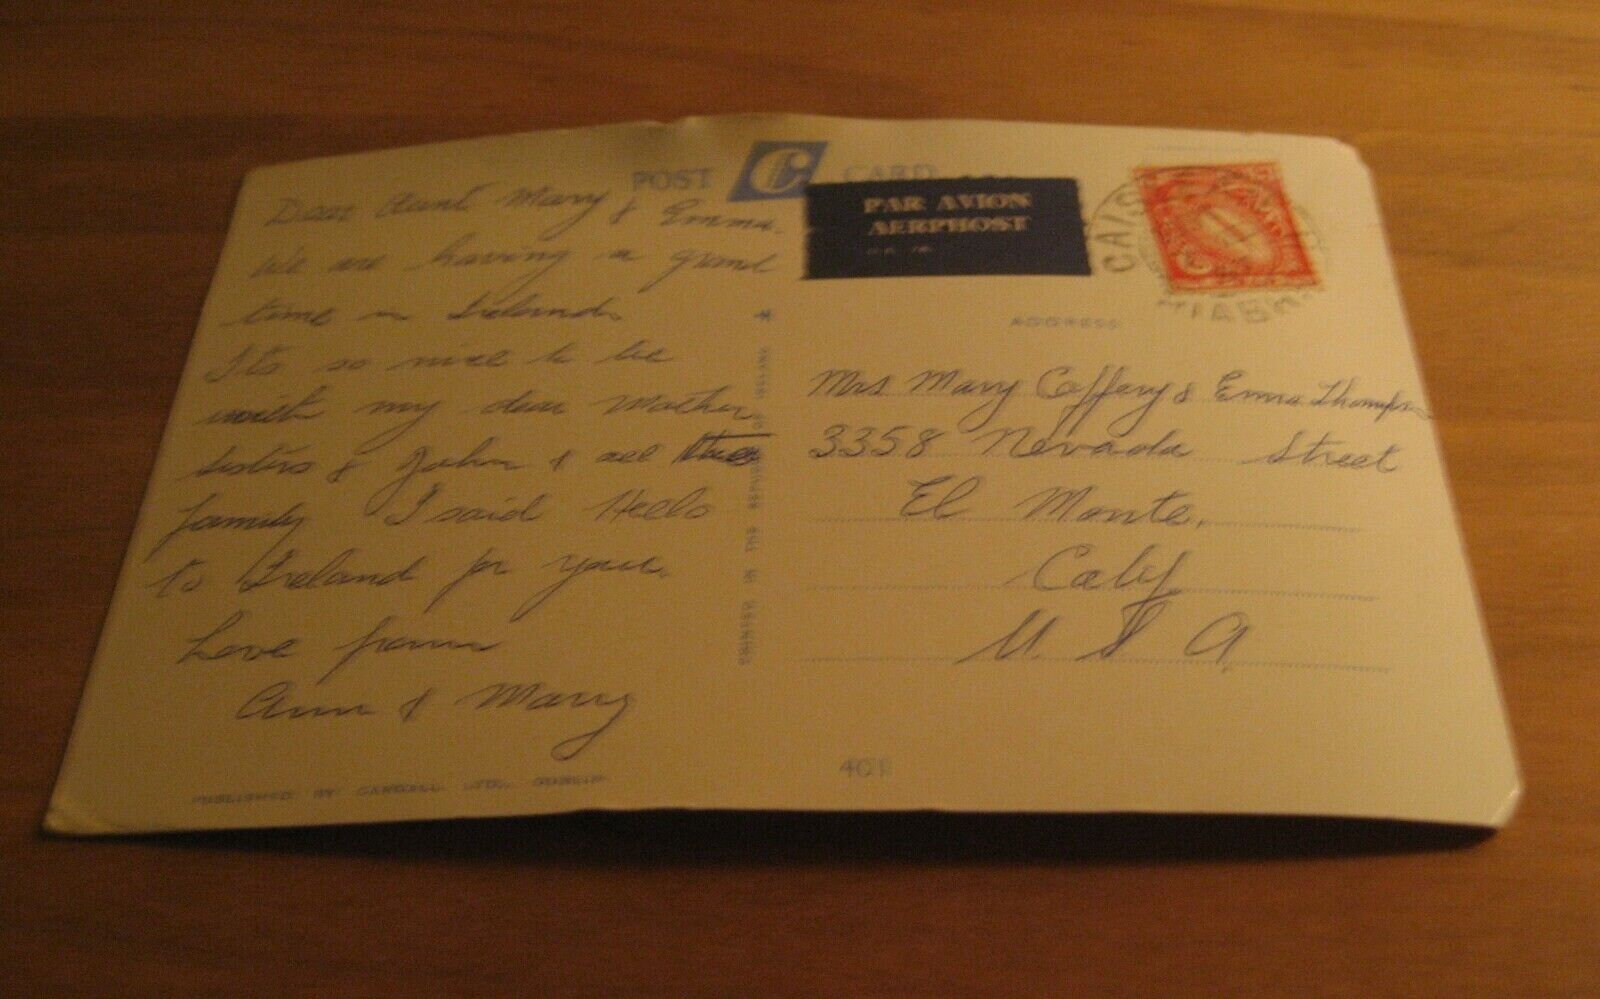 POST CARD
PAR AVION
AERPHOST
Dear Aunt Mary & Emma.
We are having a grand
time in Ireland.
Its so nice to be
with my dear Mother,
sisters & John & all
family I said Hello
to Ireland for you.
Love from
Ann & Mary
PUBLISHED BY CARDALL LTD., DUBLIN.
ADDRESS
Mrs Mary Caffery & Emma Thompson
3358 Nevada Street
El Monte,
Calif
U. S A.